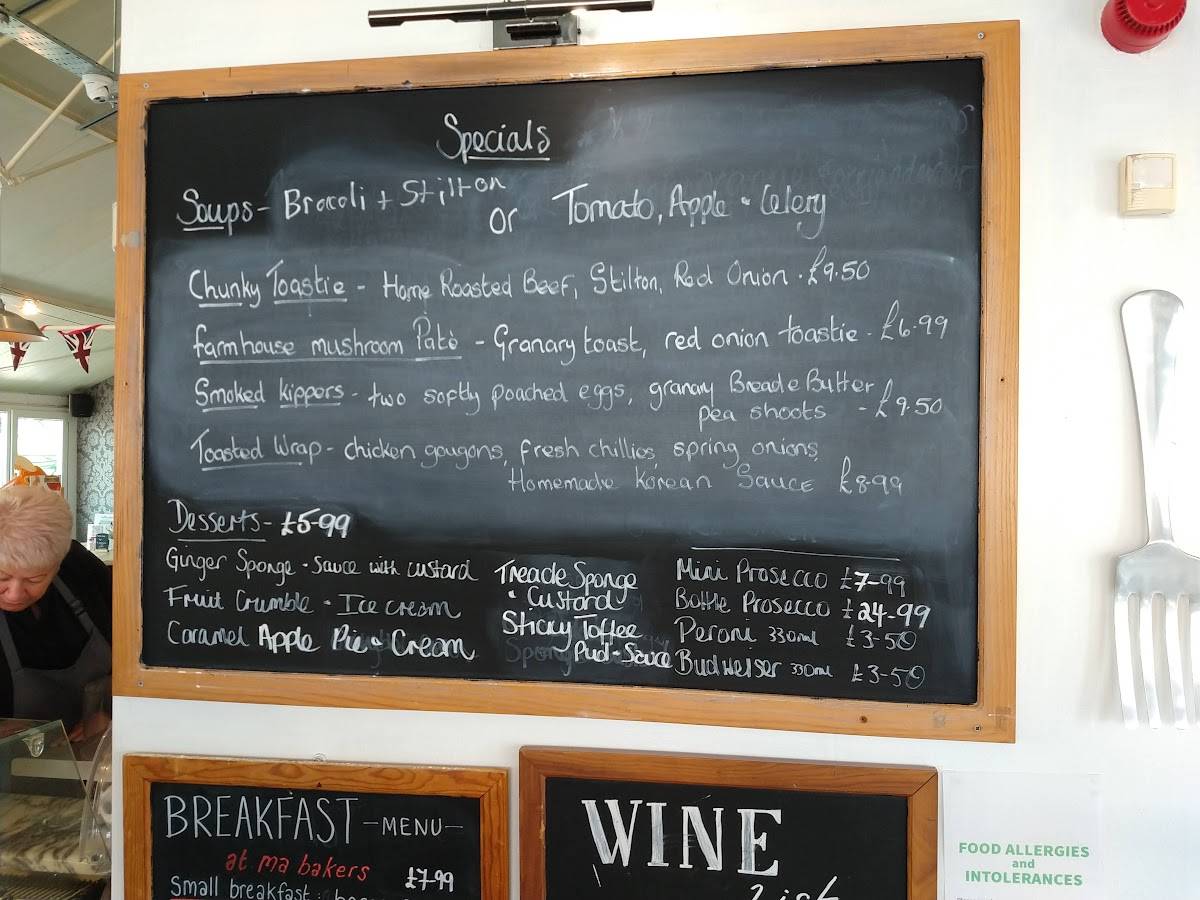 Specials
Soups - Brocoli + Stilton or Tomato, Apple + Celery
Chunky Toastie - Home Roasted Beef, Stilton, Red Onion - £9.50
farmhouse mushroom Patè - Granary toast, red onion toastie - £6.99
Smoked kippers - two softly poached eggs, granary Bread & Butter
pea shoots - £9.50
Toasted Wrap - chicken gougons, fresh chillies, spring onions,
Homemade Korean Sauce £8.99
Desserts - £5-99
Ginger Sponge - Sauce with custard
Fruit Crumble - Ice cream
Caramel Apple Pie + Cream
Treacle Sponge
+ Custard
Sticky Toffee
Pud - Sauce
Mini Prosecco £7-99
Bottle Prosecco £24-99
Peroni 330ml £3-50
Budweiser 330ml £3-50
BREAKFAST - MENU -
at ma bakers £7.99
Small breakfast:
WINE
List
FOOD ALLERGIES
and
INTOLERANCES